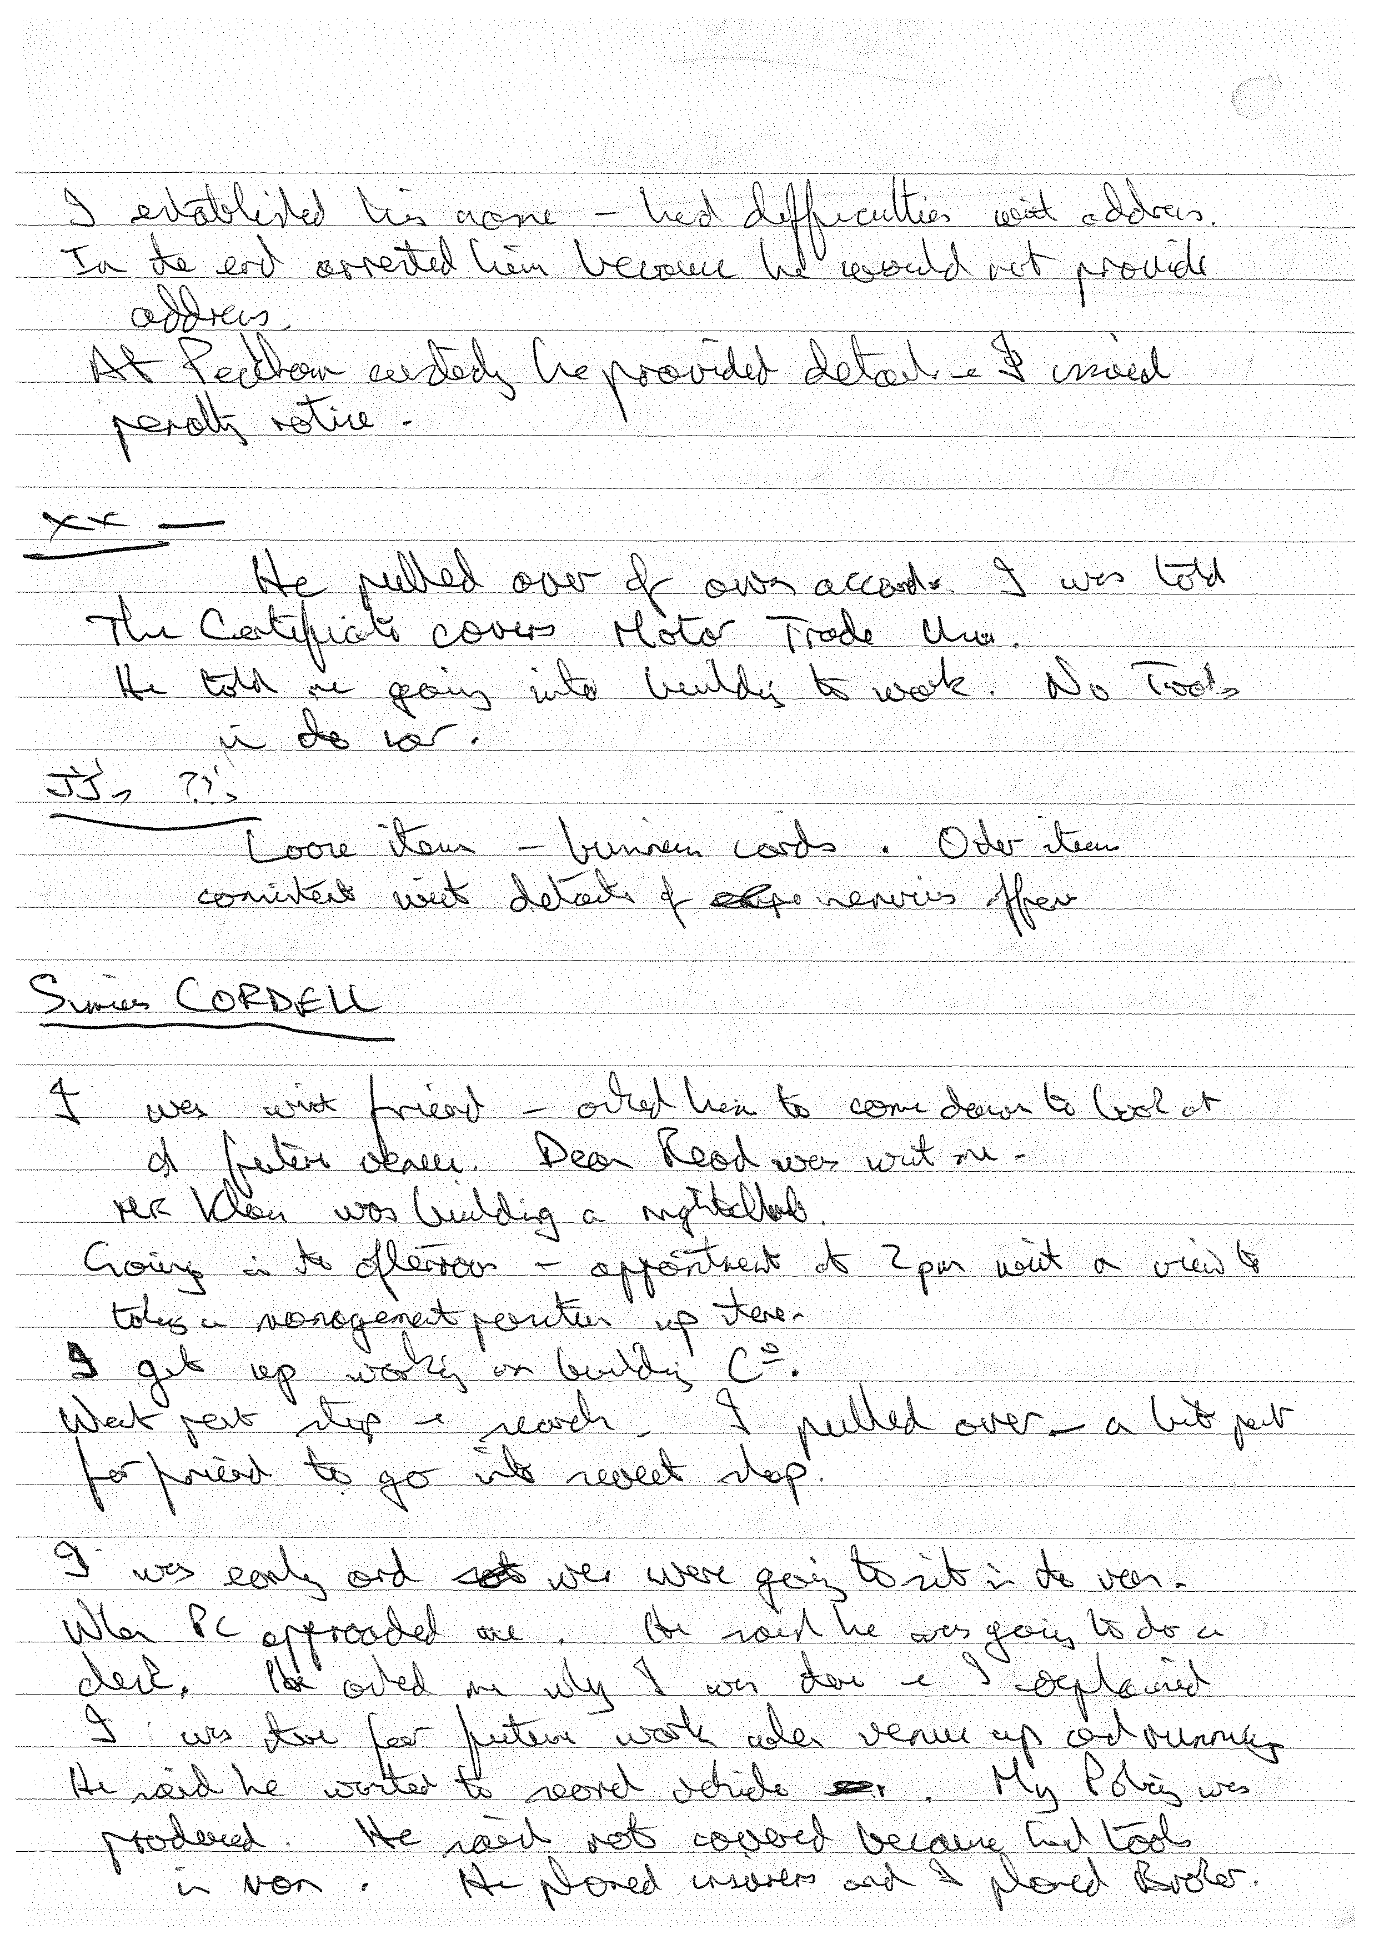 I established his name – had difficulties with address.
In the end arrested him because he would not provide
address.
At Peckham custody he provided details – I issued
penalty notice.
XX —
He pulled over of own accord. I was told
The Certificate covers Motor Trade Use.
He told me going into building to work. No Tools
in the car.
JJ's ??'s
Loose items – business cards. Other items
consistent with details of services offer
Simon CORDELL
I was with friend – asked him to come down to look at
a future venue. Dean Read was with me –
MR Khan was building a nightclub.
Going in the afternoon – appointment at 2pm with a view to
taking a management position up there.
I get up working on building Co.
Went past stop & search. I pulled over – a bit past
for friend to go into sweet shop.
I was early and we were going to sit in the van.
When PC approached me. He said he was going to do a
check. He asked me why I was there & I explained
I was there for future work when venue up and running
He said he wanted to search vehicle. My Policy was
produced. He said not covered because had tools
in van. He phoned insurers and I phoned Broker.